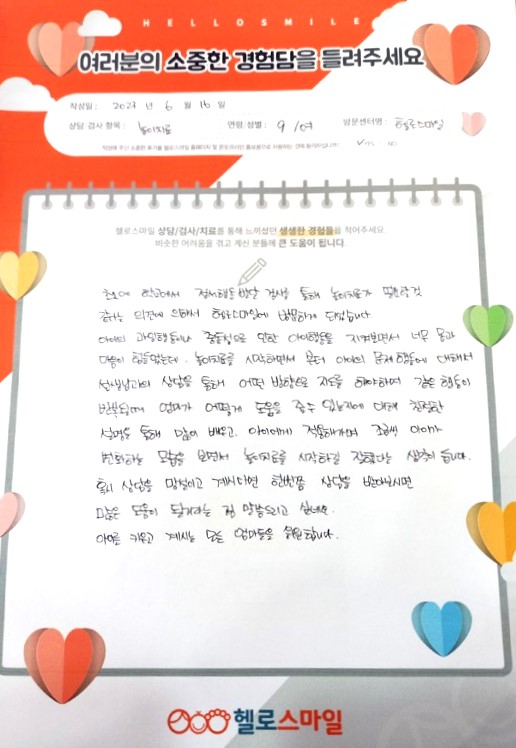 HELLOSMILE
여러분의 소중한 경험담을 들려주세요
작성일 : 2023 년 6 월 16 일
상담·검사 항목 : 놀이치료 연령/성별 : 9 /여 방문센터명 : 헬로스마일
작성해 주신 소중한 후기를 헬로스마일 홈페이지 및 온오프라인 홍보용으로 사용하는 것에 동의하십니까? ✓YES NO
헬로스마일 상담/검사/치료를 통해 느끼셨던 생생한 경험들을 적어주세요.
비슷한 어려움을 겪고 계신 분들께 큰 도움이 됩니다.
초1에 학교에서 정서행동발달 검사를 통해 놀이치료가 필요할것
같다는 의견에 의해서 헬로스마일에 방문하게 되었습니다
아이의 과잉행동이나 충동성으로 인한 아이행동을 지켜보면서 너무 몸과
마음이 힘들었는데. 놀이치료를 시작하면서 부터 아이의 문제행동에 대해서
선생님과의 상담을 통해 어떤 방향으로 지도를 해야하며 같은 행동이
반복될때 엄마가 어떻게 도움을 줄수 있는지에 대해 친절한
설명을 통해 많이 배우고. 아이에게 적용해가며 조금씩 아이가
변화하는 모습을 보면서 놀이치료를 시작하길 잘했다는 생각이 듭니다.
혹시 상담을 망설이고 계시다면 한번쯤 상담을 받아보시면
많은 도움이 될거라는 점 말씀드리고 싶네요.
아이를 키우고 계시는 모든 엄마들을 응원합니다.
헬로스마일